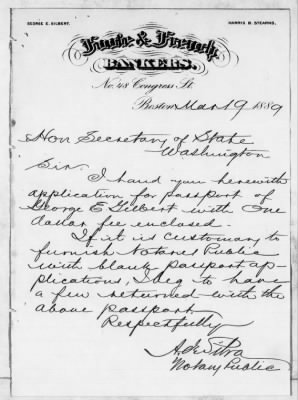 GEORGE E. GILBERT. HARRIS B. STEARNS.
Foote & French,
BANKERS.
No. 48 Congress St.
Boston Mar 19 1889
Hon Secretary of State
Washington
Sir.
I hand you herewith
application for passport of
George E Gilbert with One
dollar fee enclosed.
If it is customary to
furnish Notaries Public
with blank passport ap-
plications, I beg to have
a few returned with the
above passport.
Respectfully
Notary Public